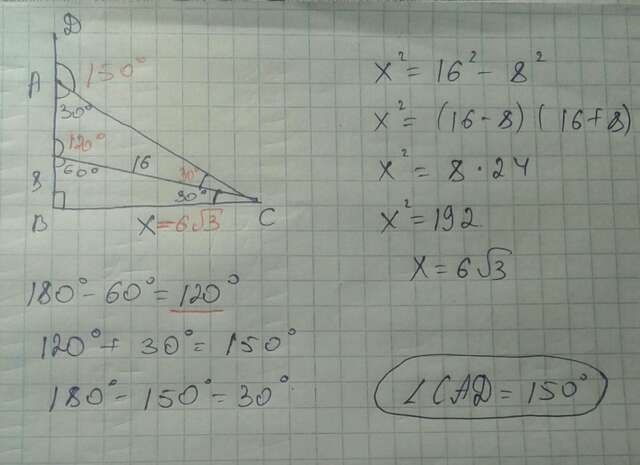 D
A 150°
30°
120°
60° 16 30°
8 30°
B X=6√3 C
x² = 16² - 8²
x² = (16-8)(16+8)
x² = 8·24
x² = 192
x = 6√3
180° - 60° = 120°
120° + 30° = 150°
180° - 150° = 30°
∠CAD = 150°